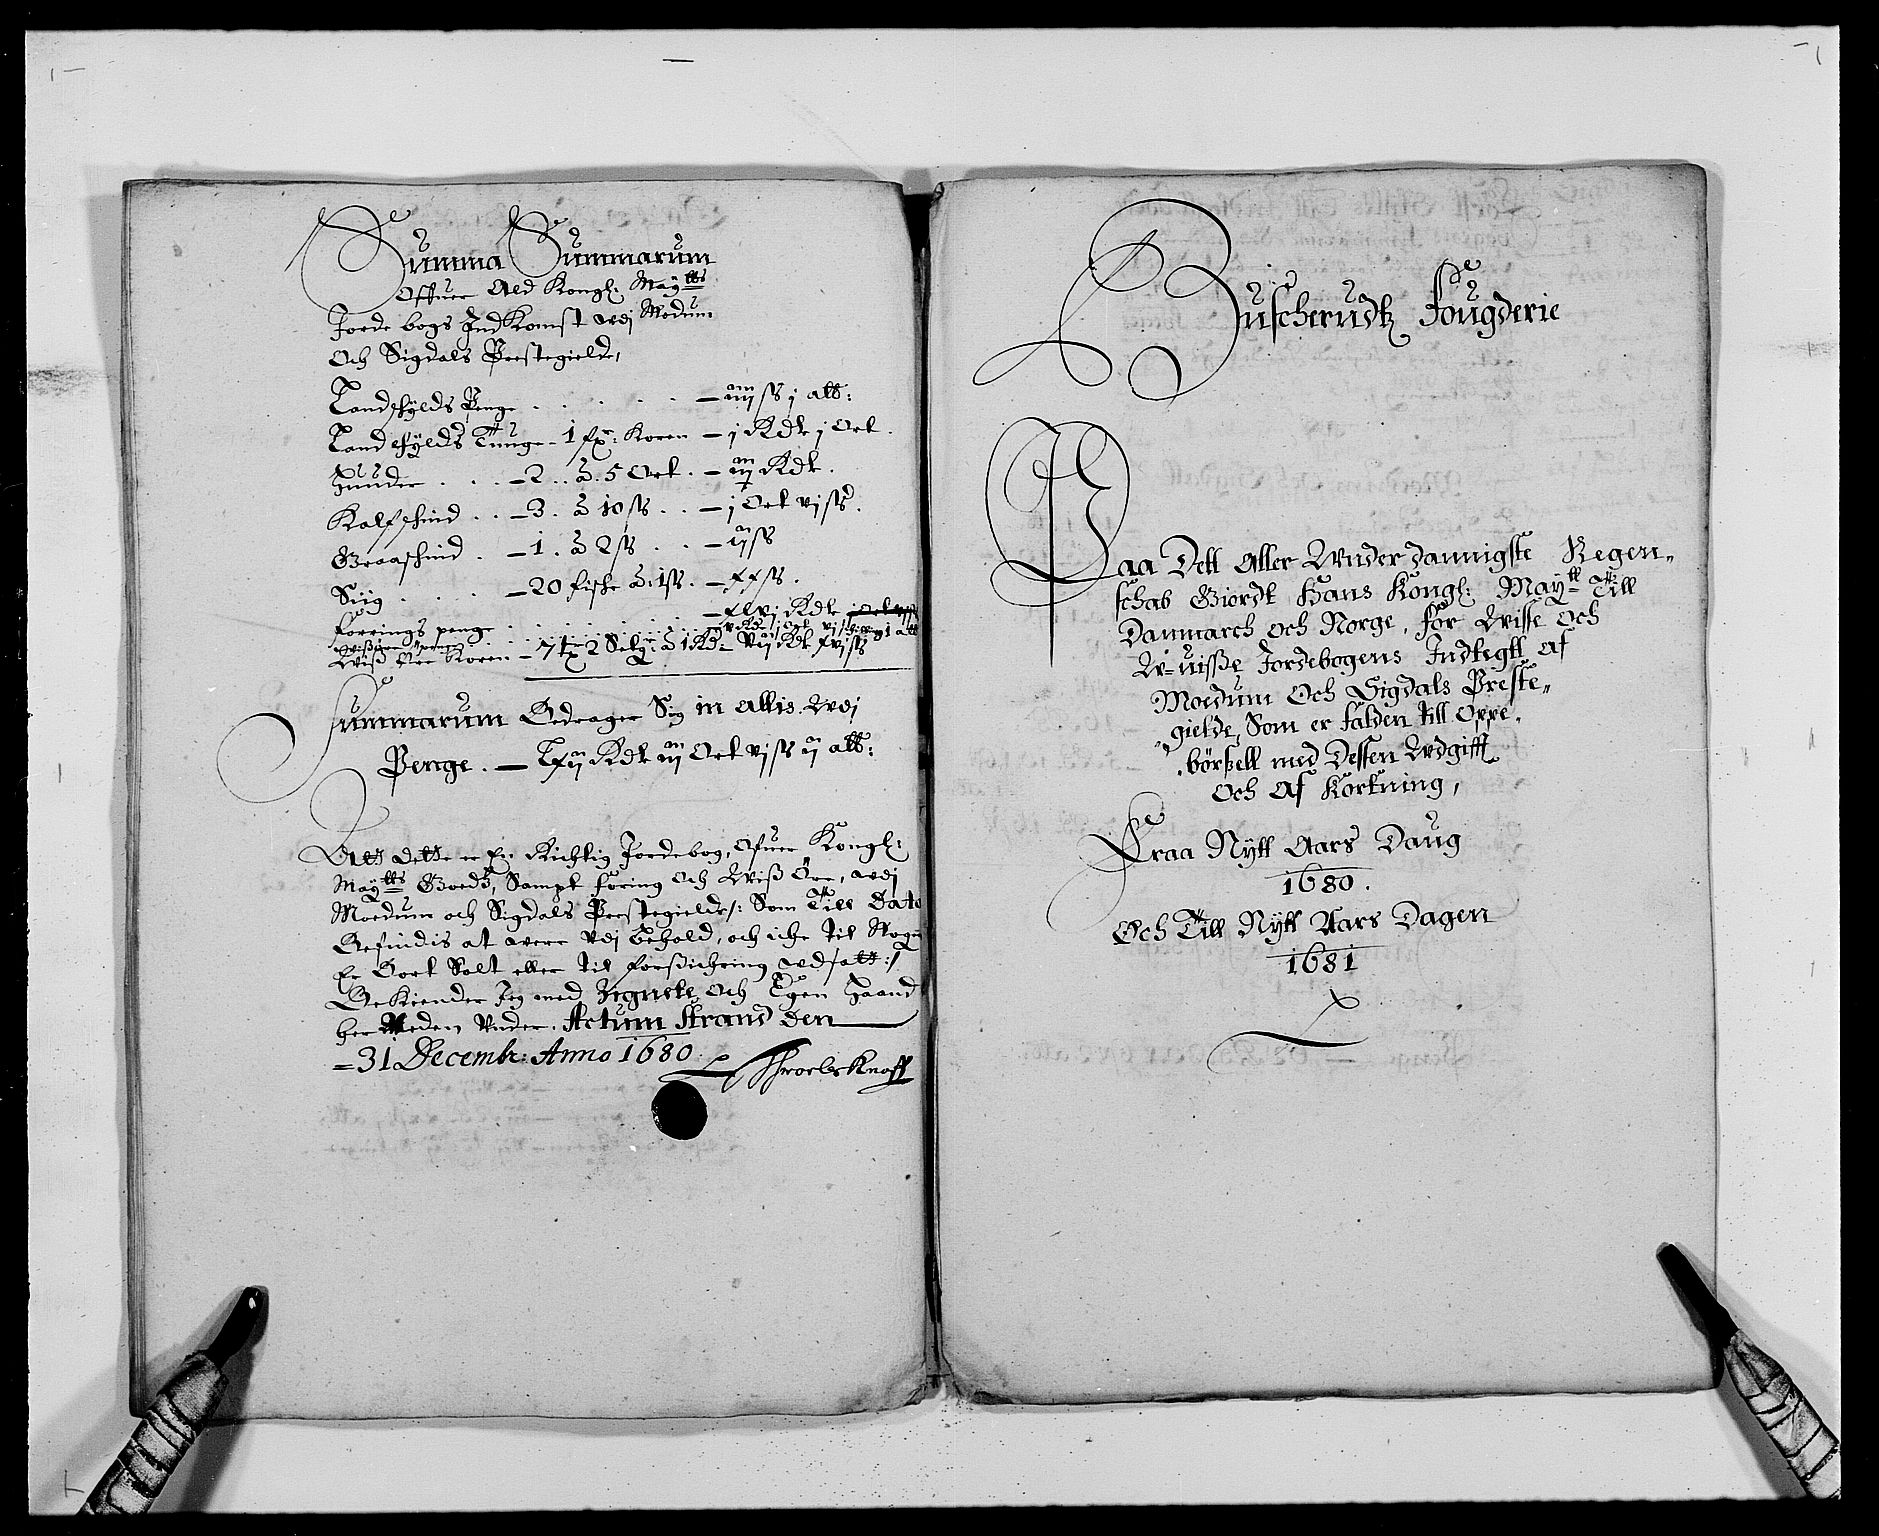 Summa Summarum
Offuer Ald Kongl: Maÿtts
Jorde bogs IndKomst udj Modum
Och Sigdals Prestegielde,
Landschÿlds Penge . . . . . — iiij ss j alb:
Landschÿlds Tunge - 1 fx: Koren — j Rdr j Ort.
Huuder . . . — 2 . . à . 5 Ort. — ij Rdr.
Kalfschind . . — 3. à 10 ss . . — j Ort vj ss.
Graaschind . — 1 . à 2 ss . . — ij ss
Siig . . . . — 20 fische à 1 ss. — xx ss.
forrings penge . . . . . . — xlvj Rdr
Wiss Øre Koren — 7 tx 2 Set: à 1 Rd:
Summarum Bedrager Sig in allis. Udj
Penge. — Rdr iij Ort vj ss ij alb:
Att dette er En Richtig Jordebog, Ofuer Kongl:
Maÿtts Goedz, Sampt foring Och Wiss Øre, udj
Moedum och Sigdals Prestegielde/: Som Till Dato
Befindis at were udj behold, och iche til Nogen
Er Bort Solt eller til forsichring udsatt:/
BeKiender Jeg med Zignete Och Egen Haand
her Neden Under. Actum Strand den
= 31 Decembr: Anno 1680.
Knoff
Buscherudtz Fougderie
Paa Dett Aller Under Dannigste Regen=
schab Giordt Hans Kongl: Maÿtt Till
Danmarch Och Norge, for Wisse Och
U=uisse Jordebogens Indtegtt af
Moedum Och Sigdals Preste=
gielde, Som er falden till Oppe=
börsell med Dessen Udgifft
Och Af Kortning,
Fraa Nÿtt Aars Daug
1680.
Och Till Nÿtt Aars Dagen
1681